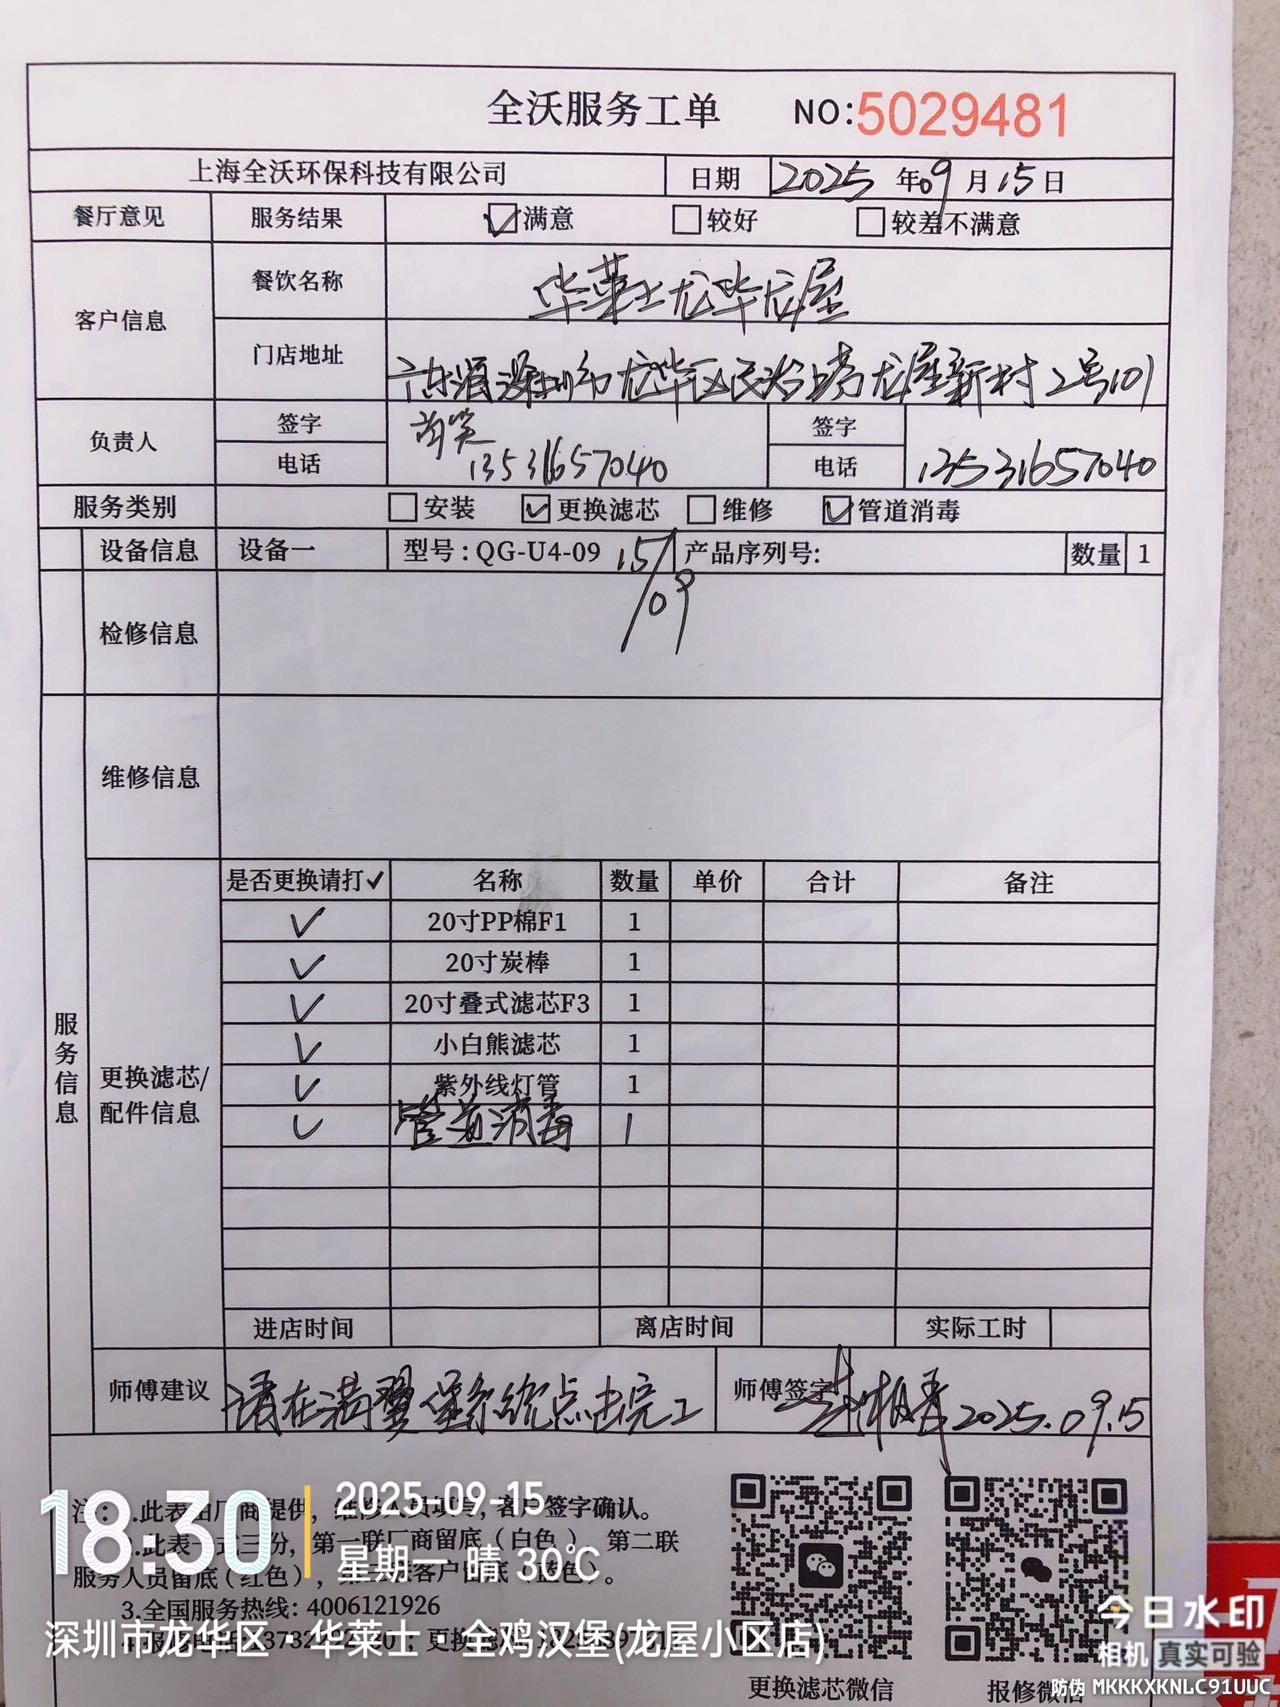 全沃服务工单 NO:5029481
上海全沃环保科技有限公司 日期 2025年09月15日
餐厅意见 服务结果 满意 较好 较差不满意
客户信息 餐饮名称 华莱士龙华龙屋
门店地址 广东省深圳市龙华区民治街龙屋新村2号101
负责人 签字 签字
电话 13531657040 电话 13531657040
服务类别 安装 更换滤芯 维修 管道消毒
设备信息 设备一 型号:QG-U4-09 15/09 产品序列号: 数量 1
检修信息
维修信息
服务信息
更换滤芯/配件信息
是否更换请打✓ 名称 数量 单价 合计 备注
✓ 20寸PP棉F1 1
✓ 20寸炭棒 1
✓ 20寸叠式滤芯F3 1
✓ 小白熊滤芯 1
✓ 紫外线灯管 1
✓ 管道消毒 1
进店时间 离店时间 实际工时
师傅建议 请在满翼保系统点击完工 师傅签字 2025.09.15
注: 1.此表由厂商提供, 维修人员填写, 客户签字确认。
2.此表一式三份, 第一联厂商留底(白色), 第二联
服务人员留底(红色), 第三联客户留底(蓝色)。
3.全国服务热线: 4006121926
更换滤芯微信 报修微信
18:30
2025-09-15
星期一 晴 30℃
深圳市龙华区·华莱士·全鸡汉堡(龙屋小区店)
今日水印
相机 真实可验
防伪 MKKKXKNLC91UUC